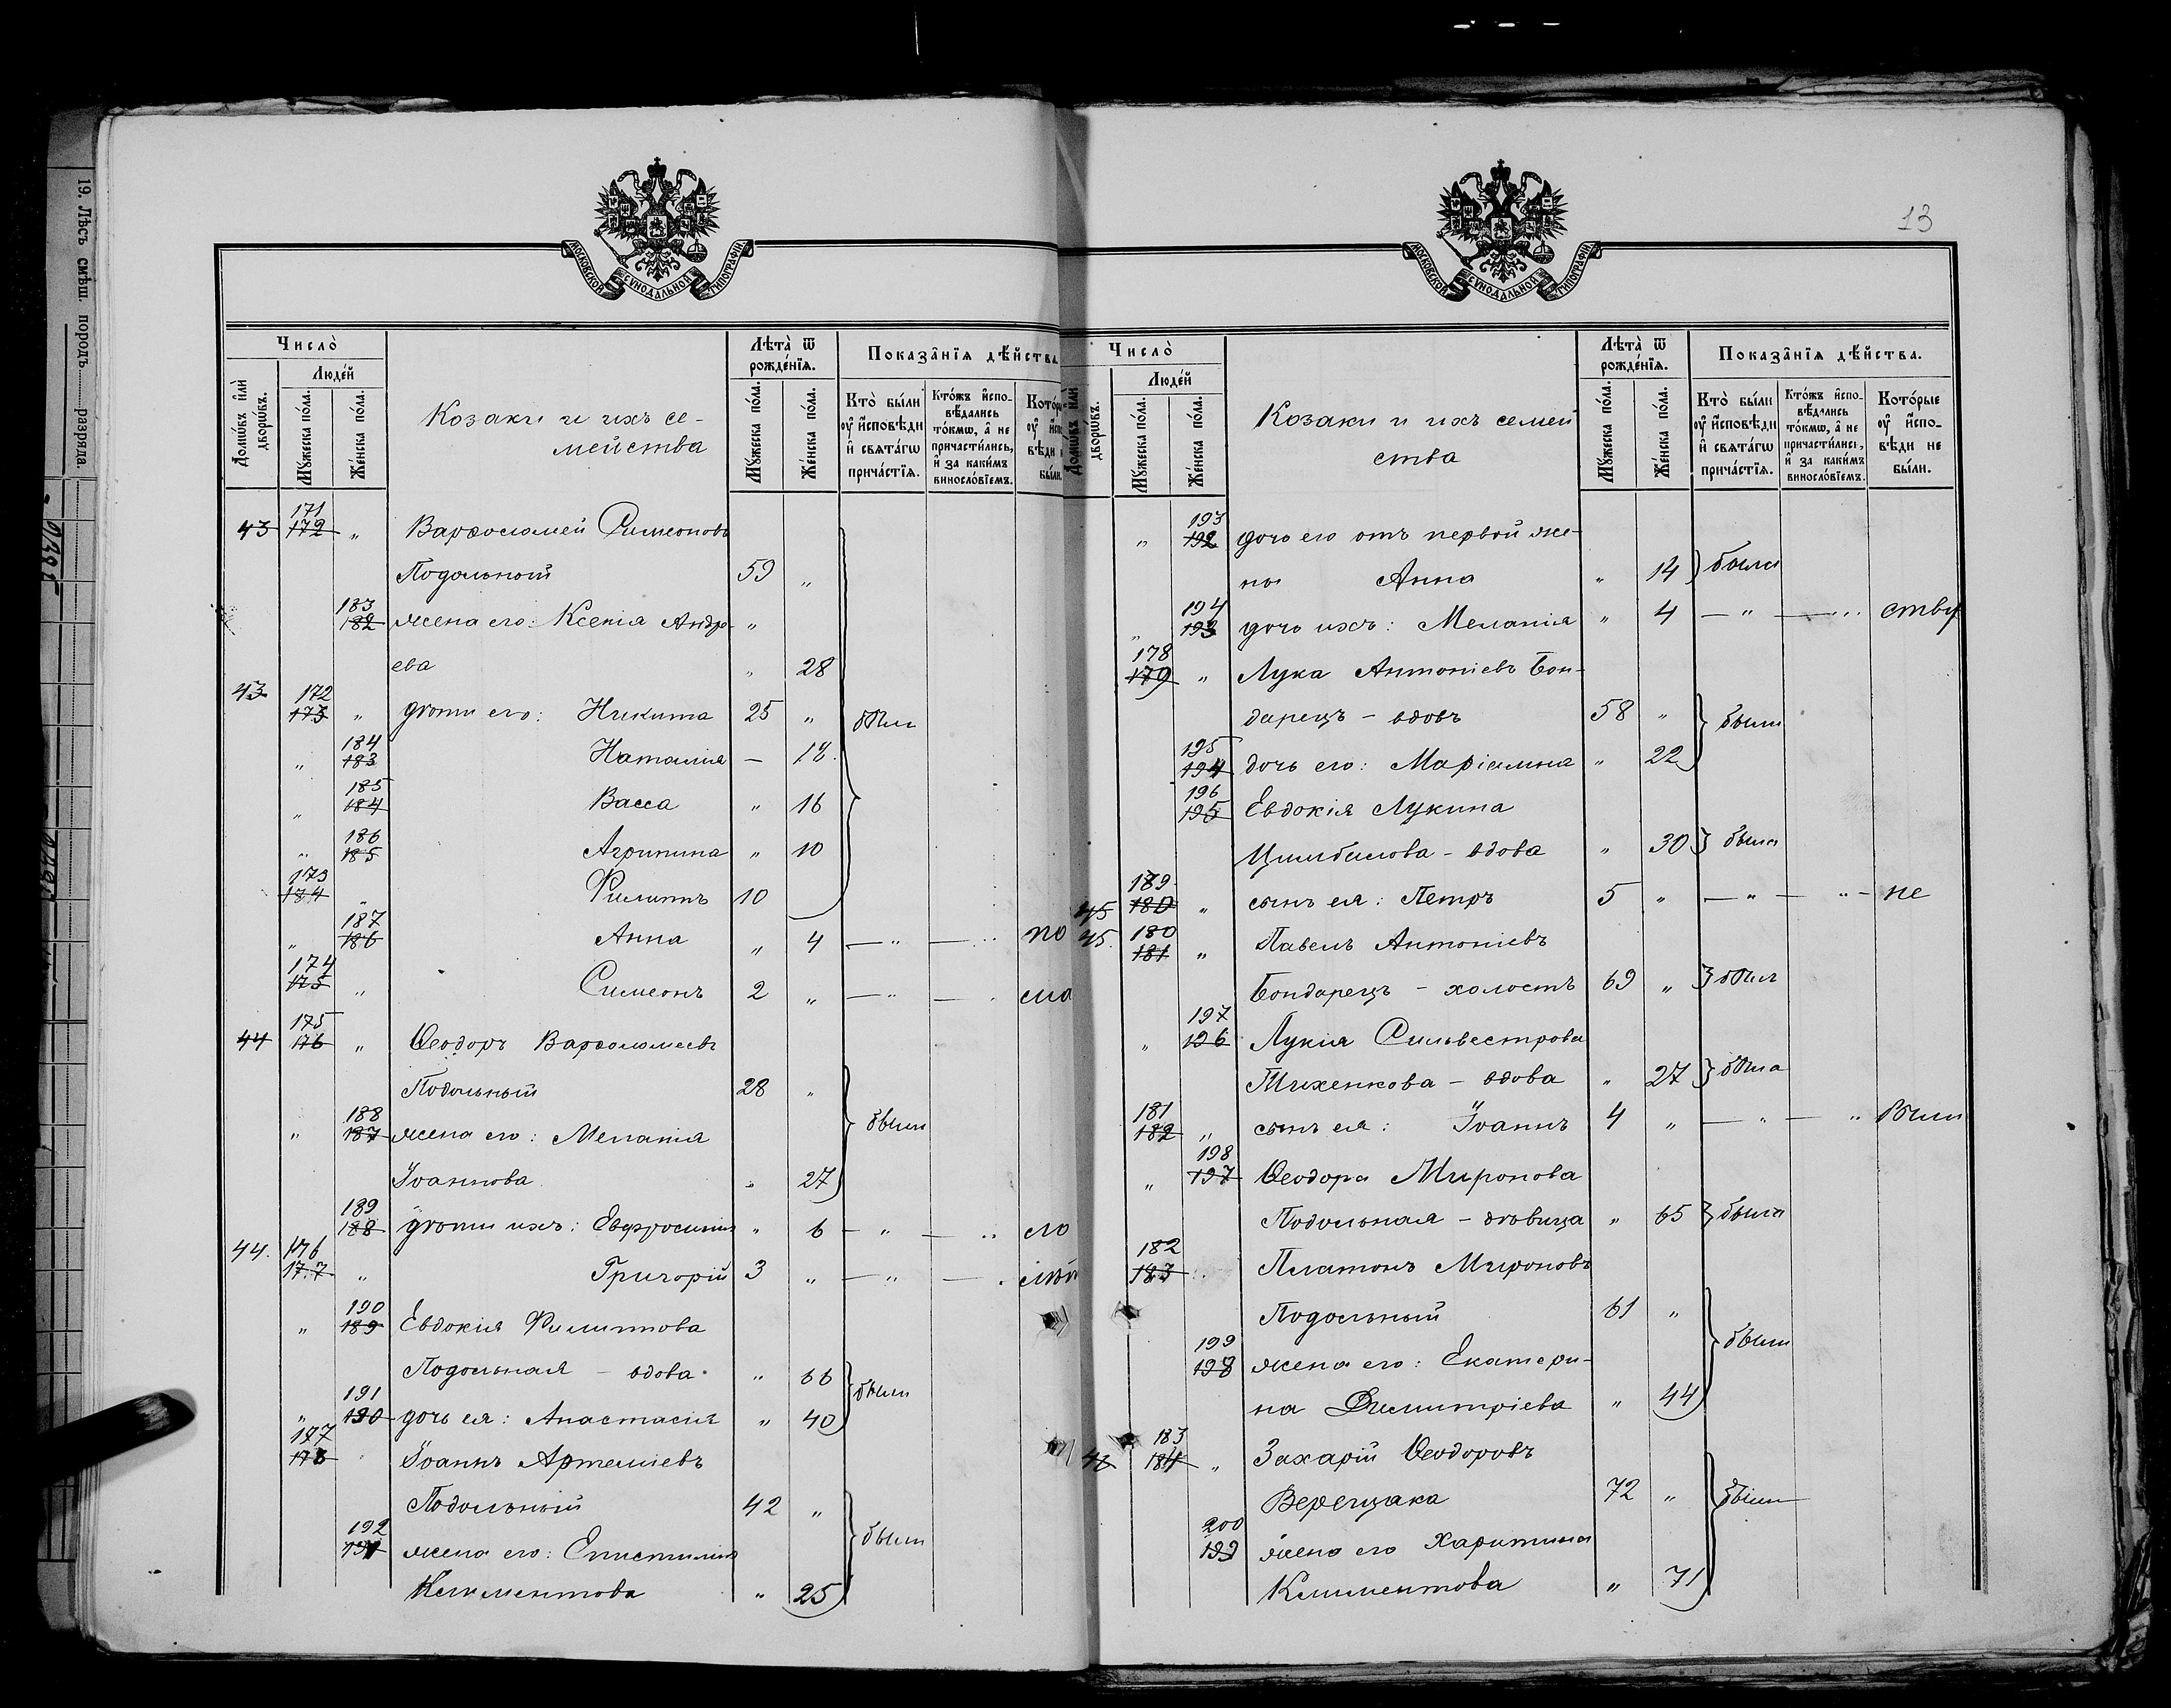 19. Лѣсъ смѣш. породъ разряда.
МОСКОВСКОЙ СѴНОДАЛЬНОЙ ТИПОГРАФІИ
Число̀
Людей
Домѡвъ и҆лѝ дворѡвъ.
Мꙋжеска по́ла.
Же́нска по́ла.
Козаки и ихъ се-
мейства
Лѣта̀ ѿ рожде́нїѧ.
Мꙋжеска по́ла.
Же́нска по́ла.
Показа̑нїѧ дѣ́йства.
Кто̀ бы́ли оу҆ и҆сповѣди и҆ свѧта́гѡ прича́стїѧ.
Кто́жъ и҆спо-вѣ́дались то́кмѡ, а҆ не причасти́лись, и҆ за каки́мъ винословїемъ.
43 171 172 „ Варѳоломей Симеоновъ
Подольный 59 „
183 182 жена его: Ксенія Андре „
ева „ 28
43 172 173 „ дѣти его: Никита 25 „ были
„ 184 183 Наталія — 18
„ 185 184 Васса „ 16
„ 186 185 Агрипина „ 10
173 174 „ Филиппъ 10
„ 187 186 Анна „ 4 — „ — по
174 175 „ Симеонъ 2 „ — „ — сло
44 175 176 „ Ѳеодоръ Варѳоломеевъ
Подольный 28 „
„ 188 187 жена его: Меланія были
Іоаннова „ 27
189 188 дѣти ихъ: Евфросинія „ 6 — „ — сло
44. 176 177 „ Григорій 3 „ — „ —
„ 190 189 Евдокія Филиппова
Подольная – вдова „ 66
„ 191 190 дочь ея: Анастасія „ 40 были
177 178 Іоаннъ Артеміевъ
Подольный 42 „
192 191 жена его: Епистимія были
Климентова „ 25
13
МОСКОВСКОЙ СѴНОДАЛЬНОЙ ТИПОГРАФІИ
Число̀
Людей
Домѡвъ и҆лѝ дворѡвъ.
Мꙋжеска по́ла.
Же́нска по́ла.
Козаки и ихъ семей
ства
Лѣта̀ ѿ рожде́нїѧ.
Мꙋжеска по́ла.
Же́нска по́ла.
Показа̑нїѧ дѣ́йства.
Кто̀ бы́ли оу҆ и҆сповѣди и҆ свѧта́гѡ прича́стїѧ.
Кто́жъ и҆спо-вѣ́дались то́кмѡ, а҆ не причасти́лись, и҆ за каки́мъ винословїемъ.
Кото́рые оу҆ и҆спо-вѣ́ди не бы́ли.
„ 193 192 дочь его отъ первой же-
ны Анна „ 14 была
„ 194 193 дочь ихъ: Меланія „ 4 — „ — ству
178 179 „ Лука Антоніевъ Бон-
дарецъ – вдовъ 58 „ были
195 194 дочь его: Маріамна „ 22
196 195 Евдокія Лукина
Цимбалова – вдова „ 30 была
45 189 180 „ сынъ ея: Петръ 5 „ — „ — „ — не
45. 180 181 „ Павелъ Антоніевъ
Бондарецъ – холостъ 69 „ былъ
„ 197 196 Лукія Сильвестрова
Михенкова – вдова „ 27 была
181 182 „ сынъ ея: Іоаннъ 4 „ — „ — „ были
„ 198 197 Ѳеодора Миронова
Подольная – дѣвица „ 65 была
182 183 Платонъ Мироновъ
Подольный 61 „
199 198 жена его: Екатери- были
на Димитріева „ 44
183 184 „ Захарій Ѳеодоровъ
Верещака 72 „ были
200 199 жена его Харитина
Климентова „ 71